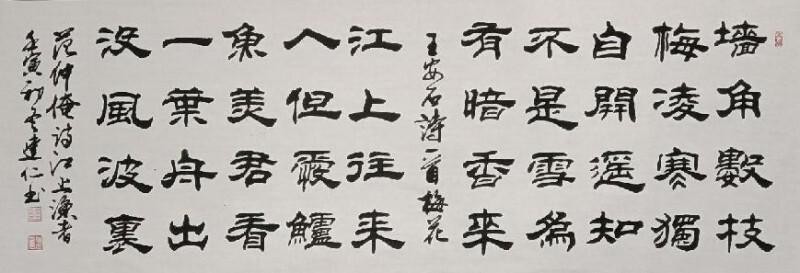 墻角數枝
梅凌寒獨
自開遥知
不是雪為
有暗香来
王安石詩一首梅花
江上往来
人但愛鱸
魚美君看
一葉舟出
没風波裏
范仲淹诗江上漁者
壬寅初冬仁书